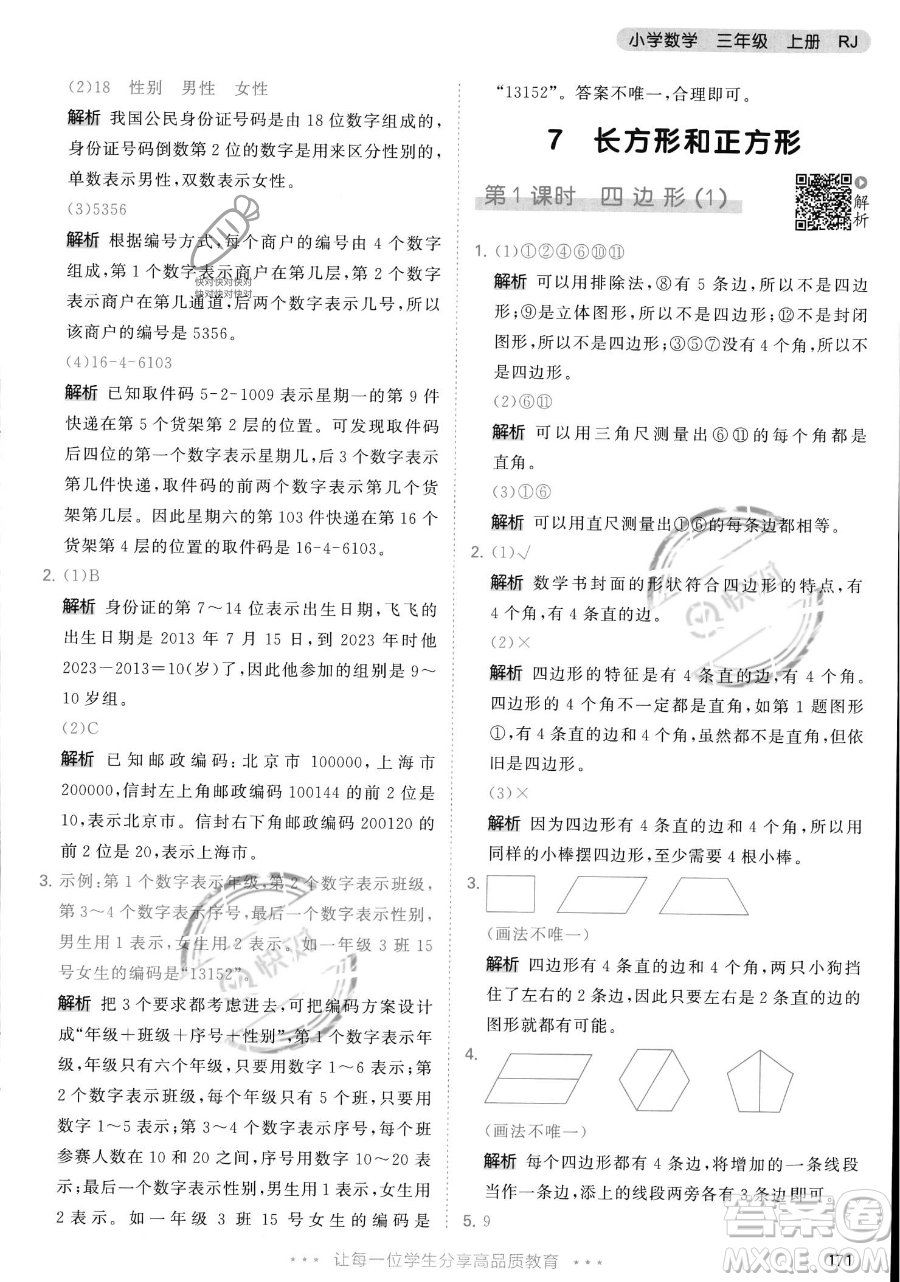 小学数学 三年级 上册 RJ
(2)18 性别 男性 女性
解析 我国公民身份证号码是由 18 位数字组成的,
身份证号码倒数第 2 位的数字是用来区分性别的,
单数表示男性,双数表示女性。
(3)5356
解析 根据编号方式,每个商户的编号由 4 个数字
组成,第 1 个数字表示商户在第几层,第 2 个数字
表示商户在第几通道,后两个数字表示几号,所以
该商户的编号是 5356。
快对快对快对
快对快对快对
(4)16-4-6103
解析 已知取件码 5-2-1009 表示星期一的第 9 件
快递在第 5 个货架第 2 层的位置。可发现取件码
后四位的第 1 个数字表示星期几,后三个数字表示
第几件快递,取件码的前两个数字表示第几个货
架第几层。因此星期六的第 103 件快递在第 16 个
货架第 4 层的位置的取件码是 16-4-6103。
2. (1)B
解析 身份证的第 7～14 位表示出生日期,飞飞的
出生日期是 2013 年 7 月 15 日,到 2023 年时他
2023-2013=10(岁)。因此他参加的组别是 9～
10 岁组。
(2)C
解析 已知邮政编码:北京市 100000,上海市
200000。信封左上角邮政编码 100144 的前 2 位是
10,表示北京市。信封右下角邮政编码 200120 的
前 2 位是 20,表示上海市。
3. 示例:第 1 个数字表示年级,第 2 个数字表示班级,
第 3～4 个数字表示序号,最后一个数字表示性别,
男生用 1 表示,女生用 2 表示。如一年级 3 班 15
号女生的编码是“13152”。
解析 把 3 个要求都考虑进去,可把编码方案设计
成“年级+班级+序号+性别”,第 1 个数字表示年
级,年级只有六个年级,只要用数字 1～6 表示;第
2 个数字表示班级,年级最多只有 5 个班,只要用
数字 1～5 表示;第 3～4 个数字表示序号,每个班
参赛人数在 10 和 20 之间,只要用数字 10～20 表
示;最后一个数字表示性别,男生用 1 表示,女生用
2 表示。如一年级 3 班 15 号女生的编码是
“13152”。答案不唯一,合理即可。
7 长方形和正方形
第 1 课时 四边形(1)
解析
1. (1)①②④⑥⑩⑪
解析 可以用排除法,⑧有 5 条边,所以不是四边
形;⑨是立体图形,所以不是四边形;⑫不是封闭
图形,所以不是四边形;③⑤⑦没有 4 个角,所以不
是四边形。
(2)⑥⑪
解析 可以用三角尺测量出⑥⑪的每个角都是
直角。
(3)①⑥
解析 可以用直尺测量出①⑥的每条边都相等。
2. (1)√
解析 数学书封面的形状符合四边形的特点,有
4 个角,有 4 条直的边。
(2)×
解析 四边形的特征是有 4 条直的边,有 4 个角。
四边形的 4 个角不一定都是直角,如第 1 题图形
①、②,有 4 条直的边和 4 个角,虽然都不是直角,但依
旧是四边形。
(3)×
解析 因为四边形有 4 条直的边和 4 个角,所以用
同样的小棒摆四边形,至少需要 4 根小棒。
3.
(画法不唯一)
解析 四边形有 4 条直的边和 4 个角,两只小狗挡
住了左右的 2 条边,所以左右是 2 条直的边的
图形都有可能。
4.
(画法不唯一)
解析 每个四边形有 4 条边,将增加的一条线段
当作一条边,添加上的线段两边分别有 3 条边即可。
5. 9
让每一位学生分享高品质教育
171
快对
快对
答案圈
MXQE.COM